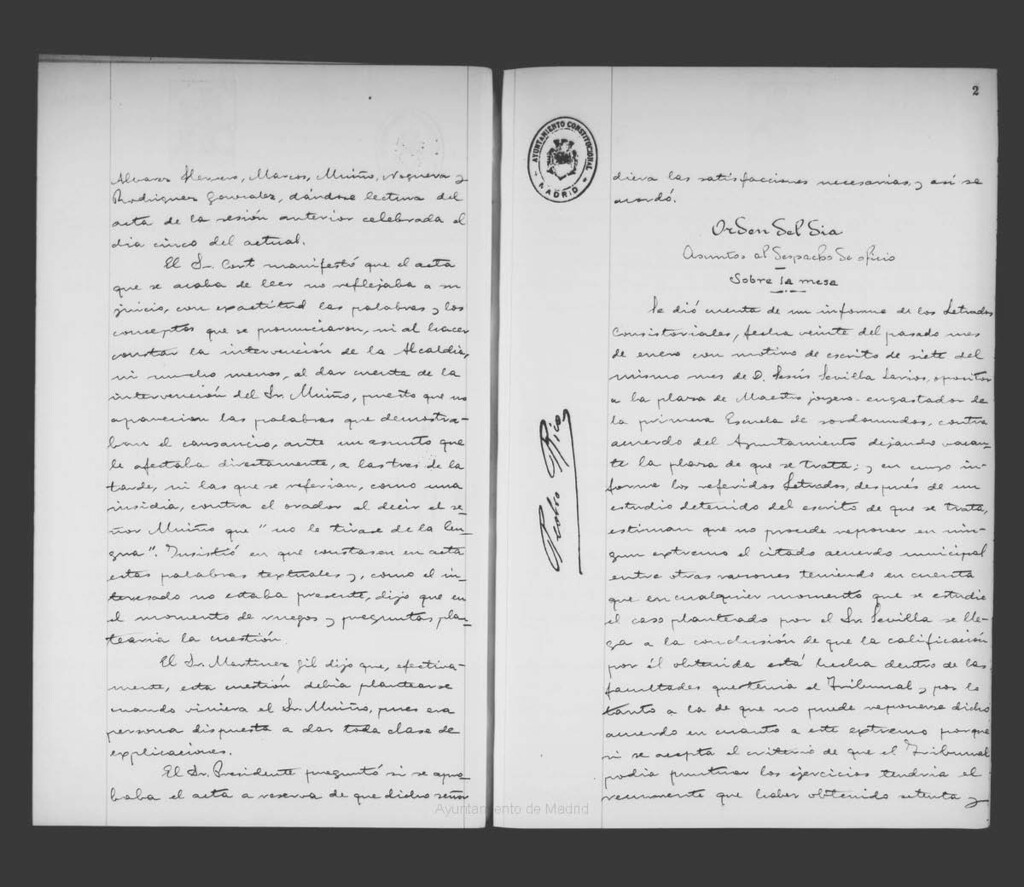 Alvarez Herrero, Marcos, Muiño, Noguera y
Rodriguez Gonzalez, dándose lectura del
acta de la sesión anterior celebrada el
dia cinco del actual.
El Sr. Cort manifestó que el acta
que se acaba de leer no reflejaba a su
juicio, con exactitud las palabras y los
conceptos que se pronunciaron, ni al hacer
constar la intervención de la Alcaldia,
ni mucho menos, al dar cuenta de la
intervención del Sr. Muiño, puesto que no
aparecian las palabras que demostra-
ban el cansancio, ante un asunto que
le afectaba directamente, a las tres de la
tarde, ni las que se referian, como una
insidia, contra el orador al decir el se-
ñor Muiño que "no le tirase de la len-
gua". Insistió en que constasen en acta
estas palabras textuales y, como el in-
teresado no estaba presente, dijo que en
el momento de ruegos y preguntas, plan-
tearia la cuestión.
El Sr. Martinez Gil dijo que, efectiva-
mente, esta cuestión debia plantearse
cuando viniera el Sr. Muiño, pues era
persona dispuesta a dar toda clase de
explicaciones.
El Sr. Presidente preguntó si se apro-
baba el acta a reserva de que dicho señor
2
AYUNTAMIENTO CONSTITUCIONAL
MADRID
diera las satisfacciones necesarias, y asi se
acordó.
Orden del dia
Asuntos al despacho de oficio
Sobre la mesa
Se dió cuenta de un informe de los Letrados
Consistoriales, fecha veinte del pasado mes
de enero con motivo de escrito de siete del
mismo mes de D. Jesús Sevilla, opositor
a la plaza de Maestro joyero-engastador de
la primera Escuela de sordomudos, contra
acuerdo del Ayuntamiento dejando vacan-
te la plaza de que se trata; y en cuyo in-
forme los referidos Letrados, después de un
estudio detenido del escrito de que se trata,
estiman que no procede reponer en nin-
gun extremo el citado acuerdo municipal
entre otras razones teniendo en cuenta
que en cualquier momento que se estudie
el caso planteado por el Sr. Sevilla se lle-
ga a la conclusión de que la calificación
por él obtenida está hecha dentro de las
facultades que tenia el Tribunal y por lo
tanto a la de que no puede reponerse dicho
acuerdo en cuanto a este extremo porque
ni se acepta el criterio de que el Tribunal
podia puntuar los ejercicios tendria el
recurrente que haber obtenido setenta y
Pedro Rico
Ayuntamiento de Madrid